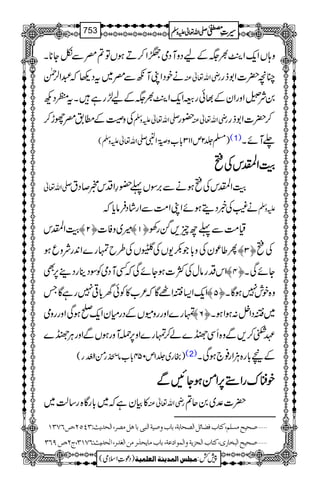 سیرتِ مصطفی صلی اللہ تعالیٰ علیہ وسلم 753
وہاں ایک اینٹ بھر جگہ کے لیے دو آدمی جھگڑا کرتے ہوں تو تم مصر سے نکل جانا۔
چنانچہ حضرت ابوذر رضی اللہ تعالیٰ عنہ نے خود اپنی آنکھ سے مصر میں یہ دیکھا کہ عبدالرحمٰن
بن شرحبیل اور ان کے بھائی ربیعہ ایک اینٹ بھر جگہ کے لیے لڑ رہے ہیں۔ یہ منظر دیکھ
کر حضرت ابوذر رضی اللہ تعالیٰ عنہ حضور صلی اللہ تعالیٰ علیہ وسلم کی وصیت کے مطابق مصر چھوڑ کر
چلے آئے۔ (1) (مسلم جلد ۲ ص ۳۱۱ باب وصیۃ النبی صلی اللہ تعالیٰ علیہ وسلم)
بیت المقدس کی فتح
بیت المقدس کی فتح ہونے سے برسوں پہلے حضور اقدس مخبر صادق صلی اللہ تعالیٰ
علیہ وسلم نے غیب کی خبر دیتے ہوئے اپنی امت سے ارشاد فرمایا کہ
قیامت سے پہلے چھ چیزیں گن رکھو (۱) میری وفات (۲) بیت المقدس
کی فتح (۳) پھر طاعون کی وبا جو بکریوں کی گلٹیوں کی طرح تمہارے اندر شروع ہو
جائے گی۔ (۴) اس قدر مال کی کثرت ہو جائے گی کہ کسی آدمی کو سو دینار دینے پر بھی
وہ خوش نہیں ہوگا۔ (۵) ایک ایسا فتنہ اٹھے گا کہ عرب کا کوئی گھر باقی نہیں رہے گا جس
میں فتنہ داخل نہ ہوا ہو۔ (۶) تمہارے اور رومیوں کے درمیان ایک صلح ہوگی اور رومی
عہد شکنی کریں گے وہ اسی جھنڈے لے کر تمہارے اوپر حملہ آور ہوں گے اور ہر جھنڈے
کے نیچے بارہ ہزار فوج ہوگی۔ (2) (بخاری جلد ۱ ص ۴۵۰ باب ما یحذر من الغدر)
خوفناک راستے پرامن ہو جائیں گے
حضرت عدی بن حاتم رضی اللہ تعالیٰ عنہ کا بیان ہے کہ میں بارگاہِ رسالت میں
......صحیح مسلم، کتاب فضائل الصحابۃ، باب وصیۃ النبی با ھل مصر، الحدیث:۲۵۴۳، ص۱۳۷۶
......صحیح البخاری، کتاب الجزیۃ والموادعۃ، باب مایحذر من الغدر، الحدیث:۳۱۷۶، ج۲، ص۳۶۹
پیش کش: مجلس المدینۃ العلمیۃ (دعوتِ اسلامی)